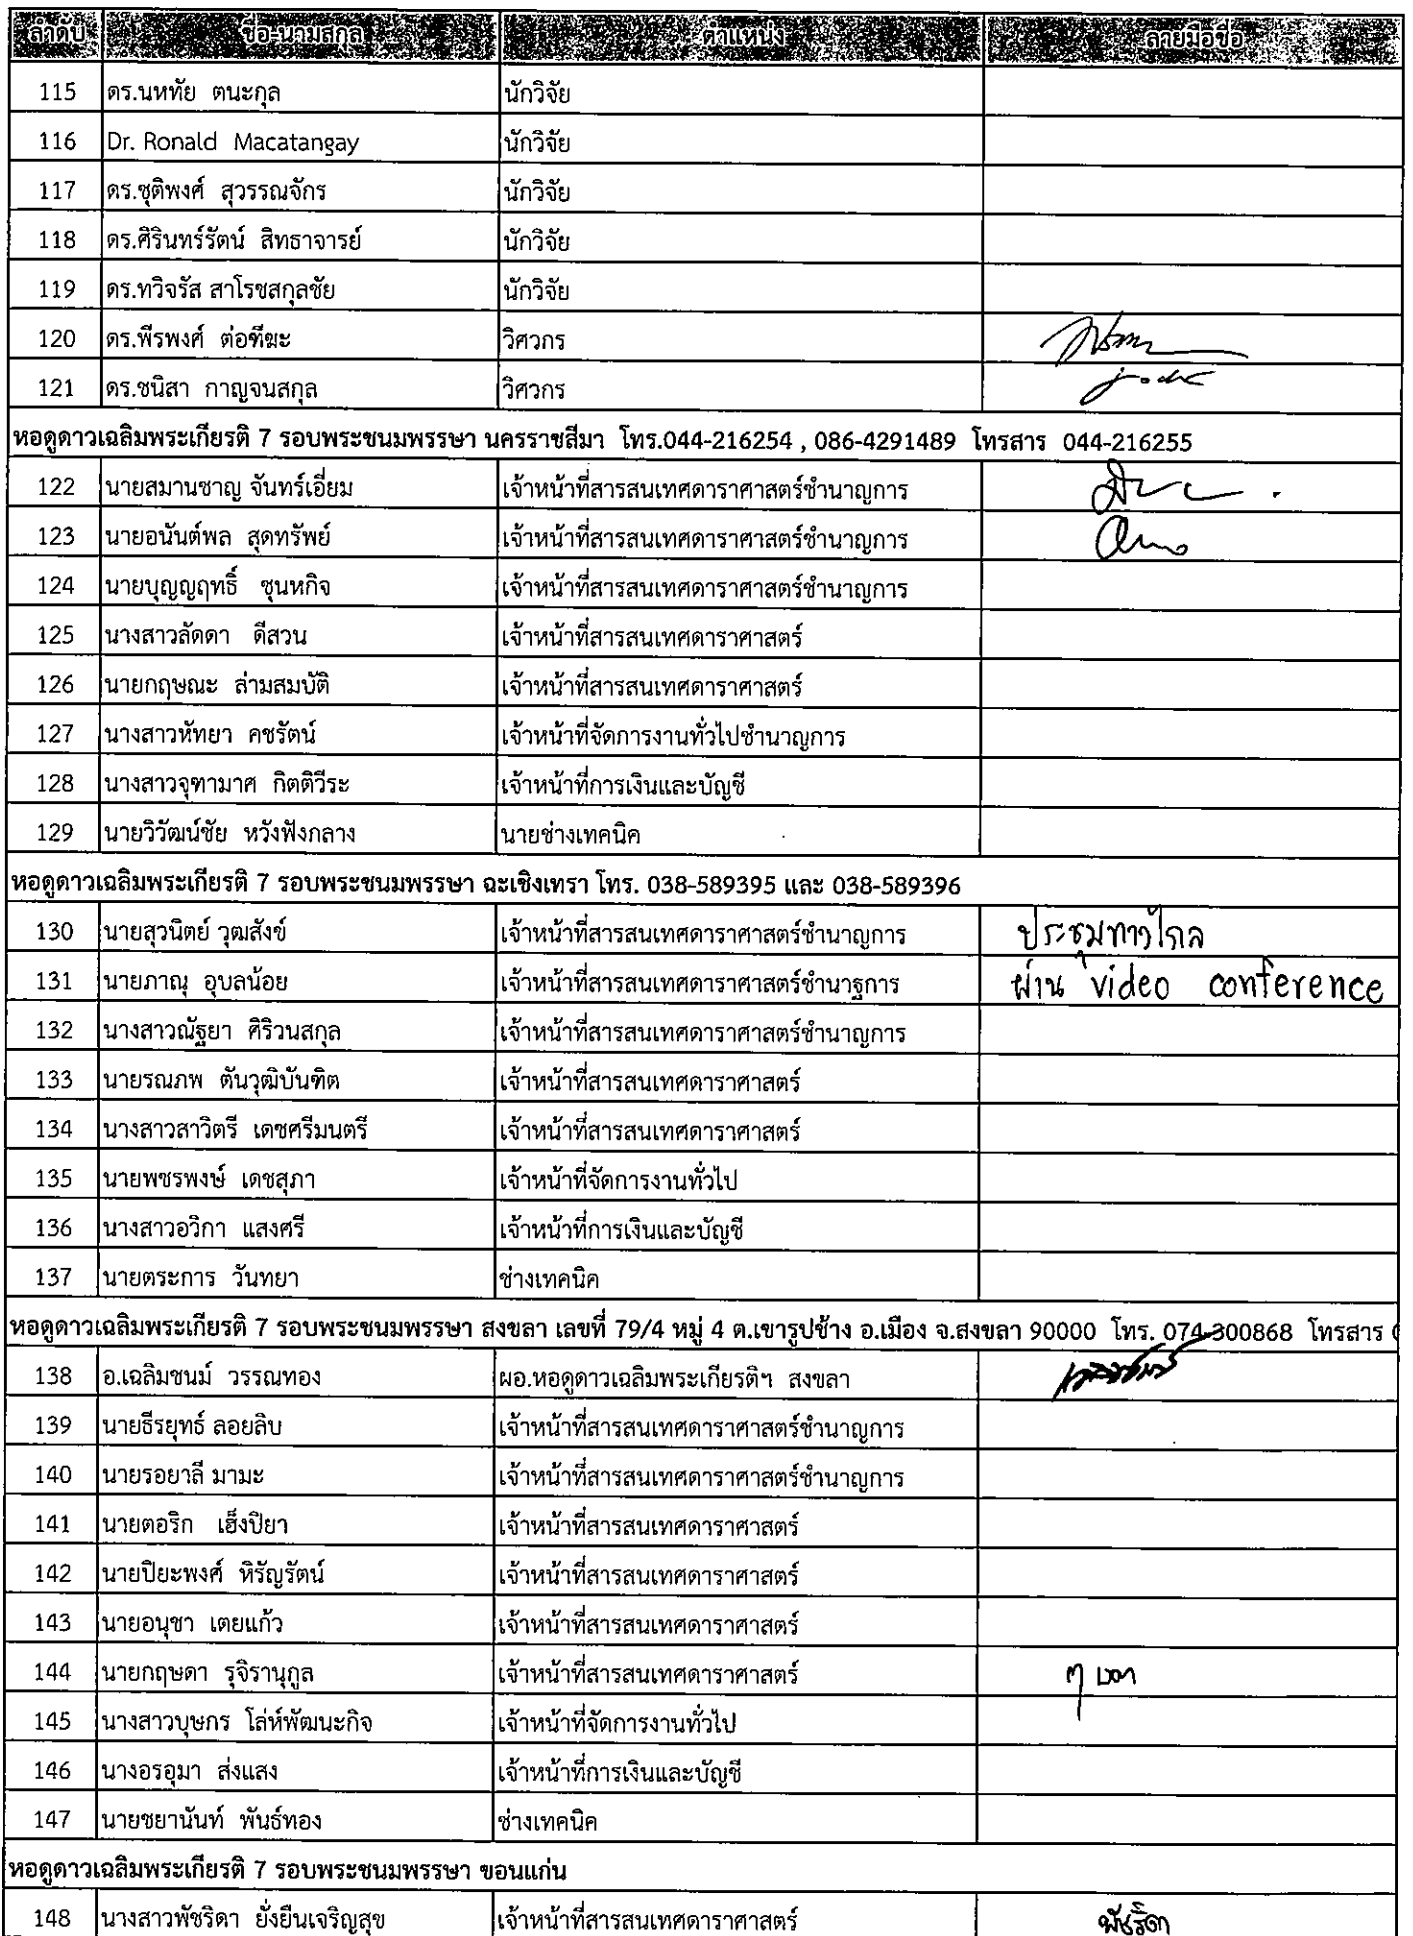 ลำดับ ชื่อ-นามสกุล ตำแหน่ง ลายมือชื่อ
115 ดร.นหทัย ตนะกุล นักวิจัย
116 Dr. Ronald Macatangay นักวิจัย
117 ดร.ชุติพงศ์ สุวรรณจักร นักวิจัย
118 ดร.ศิรินทร์รัตน์ สิทธาจารย์ นักวิจัย
119 ดร.ทวิจรัส สาโรชสกุลชัย นักวิจัย
120 ดร.พีรพงศ์ ต่อฑีฆะ วิศวกร
121 ดร.ชนิสา กาญจนสกุล วิศวกร
หอดูดาวเฉลิมพระเกียรติ 7 รอบพระชนมพรรษา นครราชสีมา โทร.044-216254 , 086-4291489 โทรสาร 044-216255
122 นายสมานชาญ จันทร์เอี่ยม เจ้าหน้าที่สารสนเทศดาราศาสตร์ชำนาญการ
123 นายอนันต์พล สุดทรัพย์ เจ้าหน้าที่สารสนเทศดาราศาสตร์ชำนาญการ
124 นายบุญญฤทธิ์ ชุนหกิจ เจ้าหน้าที่สารสนเทศดาราศาสตร์ชำนาญการ
125 นางสาวลัดดา ดีสวน เจ้าหน้าที่สารสนเทศดาราศาสตร์
126 นายกฤษณะ ล่ามสมบัติ เจ้าหน้าที่สารสนเทศดาราศาสตร์
127 นางสาวหัทยา คชรัตน์ เจ้าหน้าที่จัดการงานทั่วไปชำนาญการ
128 นางสาวจุฑามาศ กิตติวีระ เจ้าหน้าที่การเงินและบัญชี
129 นายวิวัฒน์ชัย หวังฟังกลาง นายช่างเทคนิค
หอดูดาวเฉลิมพระเกียรติ 7 รอบพระชนมพรรษา ฉะเชิงเทรา โทร. 038-589395 และ 038-589396
130 นายสุวนิตย์ วุฒสังข์ เจ้าหน้าที่สารสนเทศดาราศาสตร์ชำนาญการ ประชุมทางไกล
131 นายภาณุ อุบลน้อย เจ้าหน้าที่สารสนเทศดาราศาสตร์ชำนาฐการ ผ่าน video conference
132 นางสาวณัฐยา ศิริวนสกุล เจ้าหน้าที่สารสนเทศดาราศาสตร์ชำนาญการ
133 นายรณภพ ตันวุฒิบันฑิต เจ้าหน้าที่สารสนเทศดาราศาสตร์
134 นางสาวสาวิตรี เดชศรีมนตรี เจ้าหน้าที่สารสนเทศดาราศาสตร์
135 นายพชรพงษ์ เดชสุภา เจ้าหน้าที่จัดการงานทั่วไป
136 นางสาวอวิกา แสงศรี เจ้าหน้าที่การเงินและบัญชี
137 นายตระการ วันทยา ช่างเทคนิค
หอดูดาวเฉลิมพระเกียรติ 7 รอบพระชนมพรรษา สงขลา เลขที่ 79/4 หมู่ 4 ต.เขารูปช้าง อ.เมือง จ.สงขลา 90000 โทร. 074-300868 โทรสาร
138 อ.เฉลิมชนม์ วรรณทอง ผอ.หอดูดาวเฉลิมพระเกียรติฯ สงขลา
139 นายธีรยุทธ์ ลอยลิบ เจ้าหน้าที่สารสนเทศดาราศาสตร์ชำนาญการ
140 นายรอยาลี มามะ เจ้าหน้าที่สารสนเทศดาราศาสตร์ชำนาญการ
141 นายตอริก เฮ็งปิยา เจ้าหน้าที่สารสนเทศดาราศาสตร์
142 นายปิยะพงศ์ หิรัญรัตน์ เจ้าหน้าที่สารสนเทศดาราศาสตร์
143 นายอนุชา เตยแก้ว เจ้าหน้าที่สารสนเทศดาราศาสตร์
144 นายกฤษดา รุจิรานุกูล เจ้าหน้าที่สารสนเทศดาราศาสตร์
145 นางสาวบุษกร โล่ห์พัฒนะกิจ เจ้าหน้าที่จัดการงานทั่วไป
146 นางอรอุมา ส่งแสง เจ้าหน้าที่การเงินและบัญชี
147 นายชยานันท์ พันธ์ทอง ช่างเทคนิค
หอดูดาวเฉลิมพระเกียรติ 7 รอบพระชนมพรรษา ขอนแก่น
148 นางสาวพัชริดา ยั่งยืนเจริญสุข เจ้าหน้าที่สารสนเทศดาราศาสตร์ พัชริดา